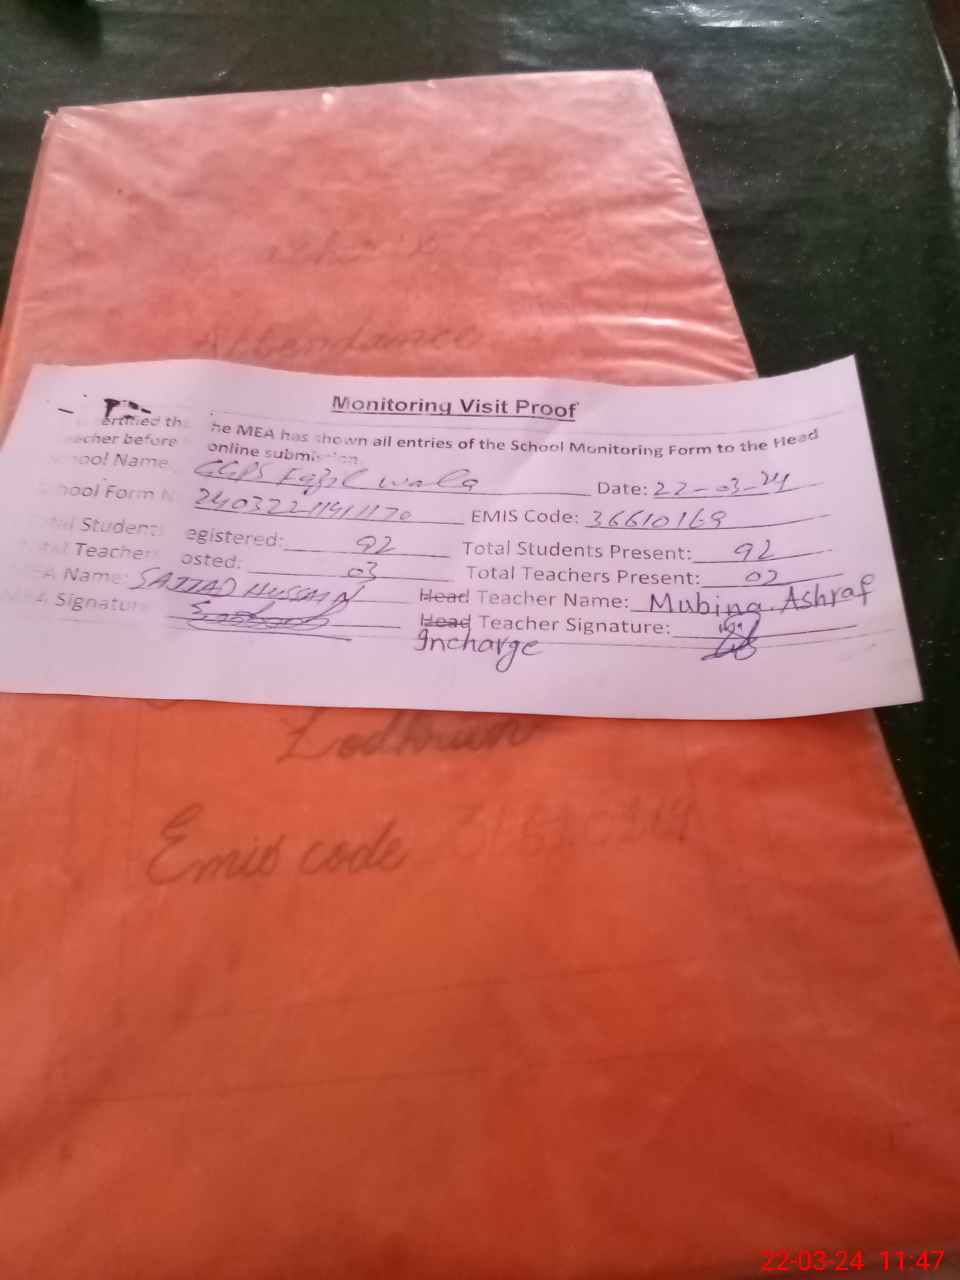 Attendance
Monitoring Visit Proof
ertified th he MEA has shown all entries of the School Monitoring Form to the Head
eacher before online submission
School Name Date: 22-03-24
School Form N EMIS Code: 36610169
Total Students egistered: 92 Total Students Present: 92
Total Teachers osted: 03 Total Teachers Present: 02
MEA Name: SAJJAD HUSSAIN Head Teacher Name: Mubina Ashraf
MEA Signature Head Teacher Signature:
Incharge
Lodhran
Emis code
22-03-24 11:47